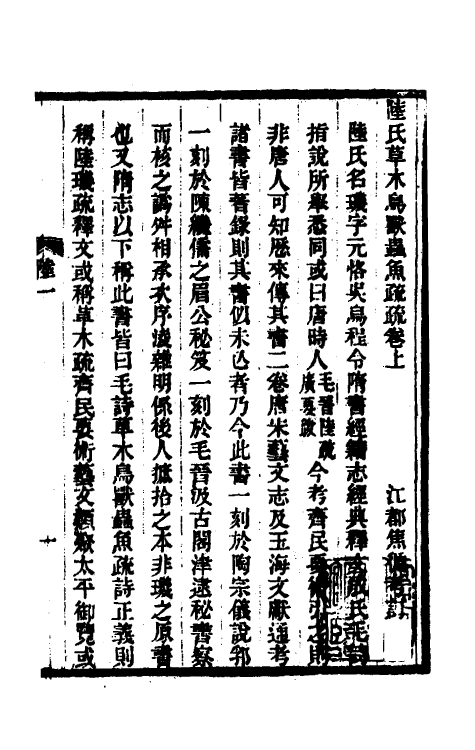 陸氏草木鳥獸蟲魚疏疏卷上　江都焦
陸氏名璣字元恪吳烏程令隋書經籍志經典釋文
指說所舉悉同或曰唐時人毛晉陸疏廣要說今考齊民要術引之則
非唐人可知歷來傳其書二卷唐宋藝文志及玉海文獻通考
諸書皆著錄則其書似未亡者乃今此書一刻於陶宗儀說郛
一刻於陳繼儒之眉公秘笈一刻於毛晉汲古閣津逮秘書察
而核之譌舛相承次序淩雜明係後人摭拾之本非璣之原書
也又隋志以下稱此書皆曰毛詩草木鳥獸蟲魚疏詩正義則
稱陸璣疏釋文或稱草木疏齊民要術藝文類聚太平御覽或
陸一